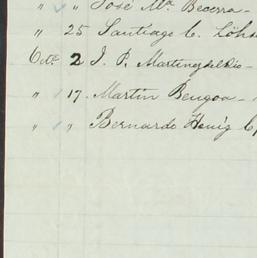 " " José Ma. Becerra -
" 25 Santiago C. Löhs
Oct. 2 J. P. Martinez del Rio -
" 17. Martin Bengoa -
" " Bernardo Henig